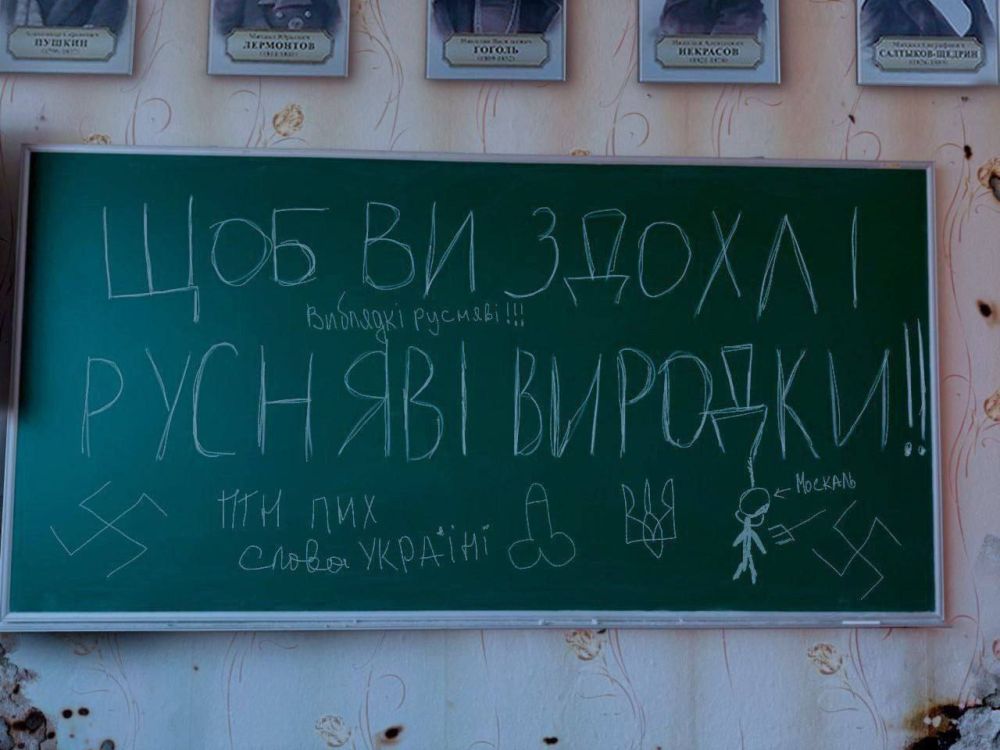 ПУШКИН
(1799-1837)
Михаил Юрьевич
ЛЕРМОНТОВ
(1814-1841)
Николай Васильевич
ГОГОЛЬ
(1809-1852)
Николай Алексеевич
НЕКРАСОВ
(1821-1878)
Михаил Евграфович
САЛТЫКОВ-ЩЕДРИН
(1826-1889)
ЩОБ ВИ ЗДОХЛІ
Виблядкі русняві!!!
РУСНЯВІ ВИРОДКИ!!
ПТН ПИХ
слова
Москаль